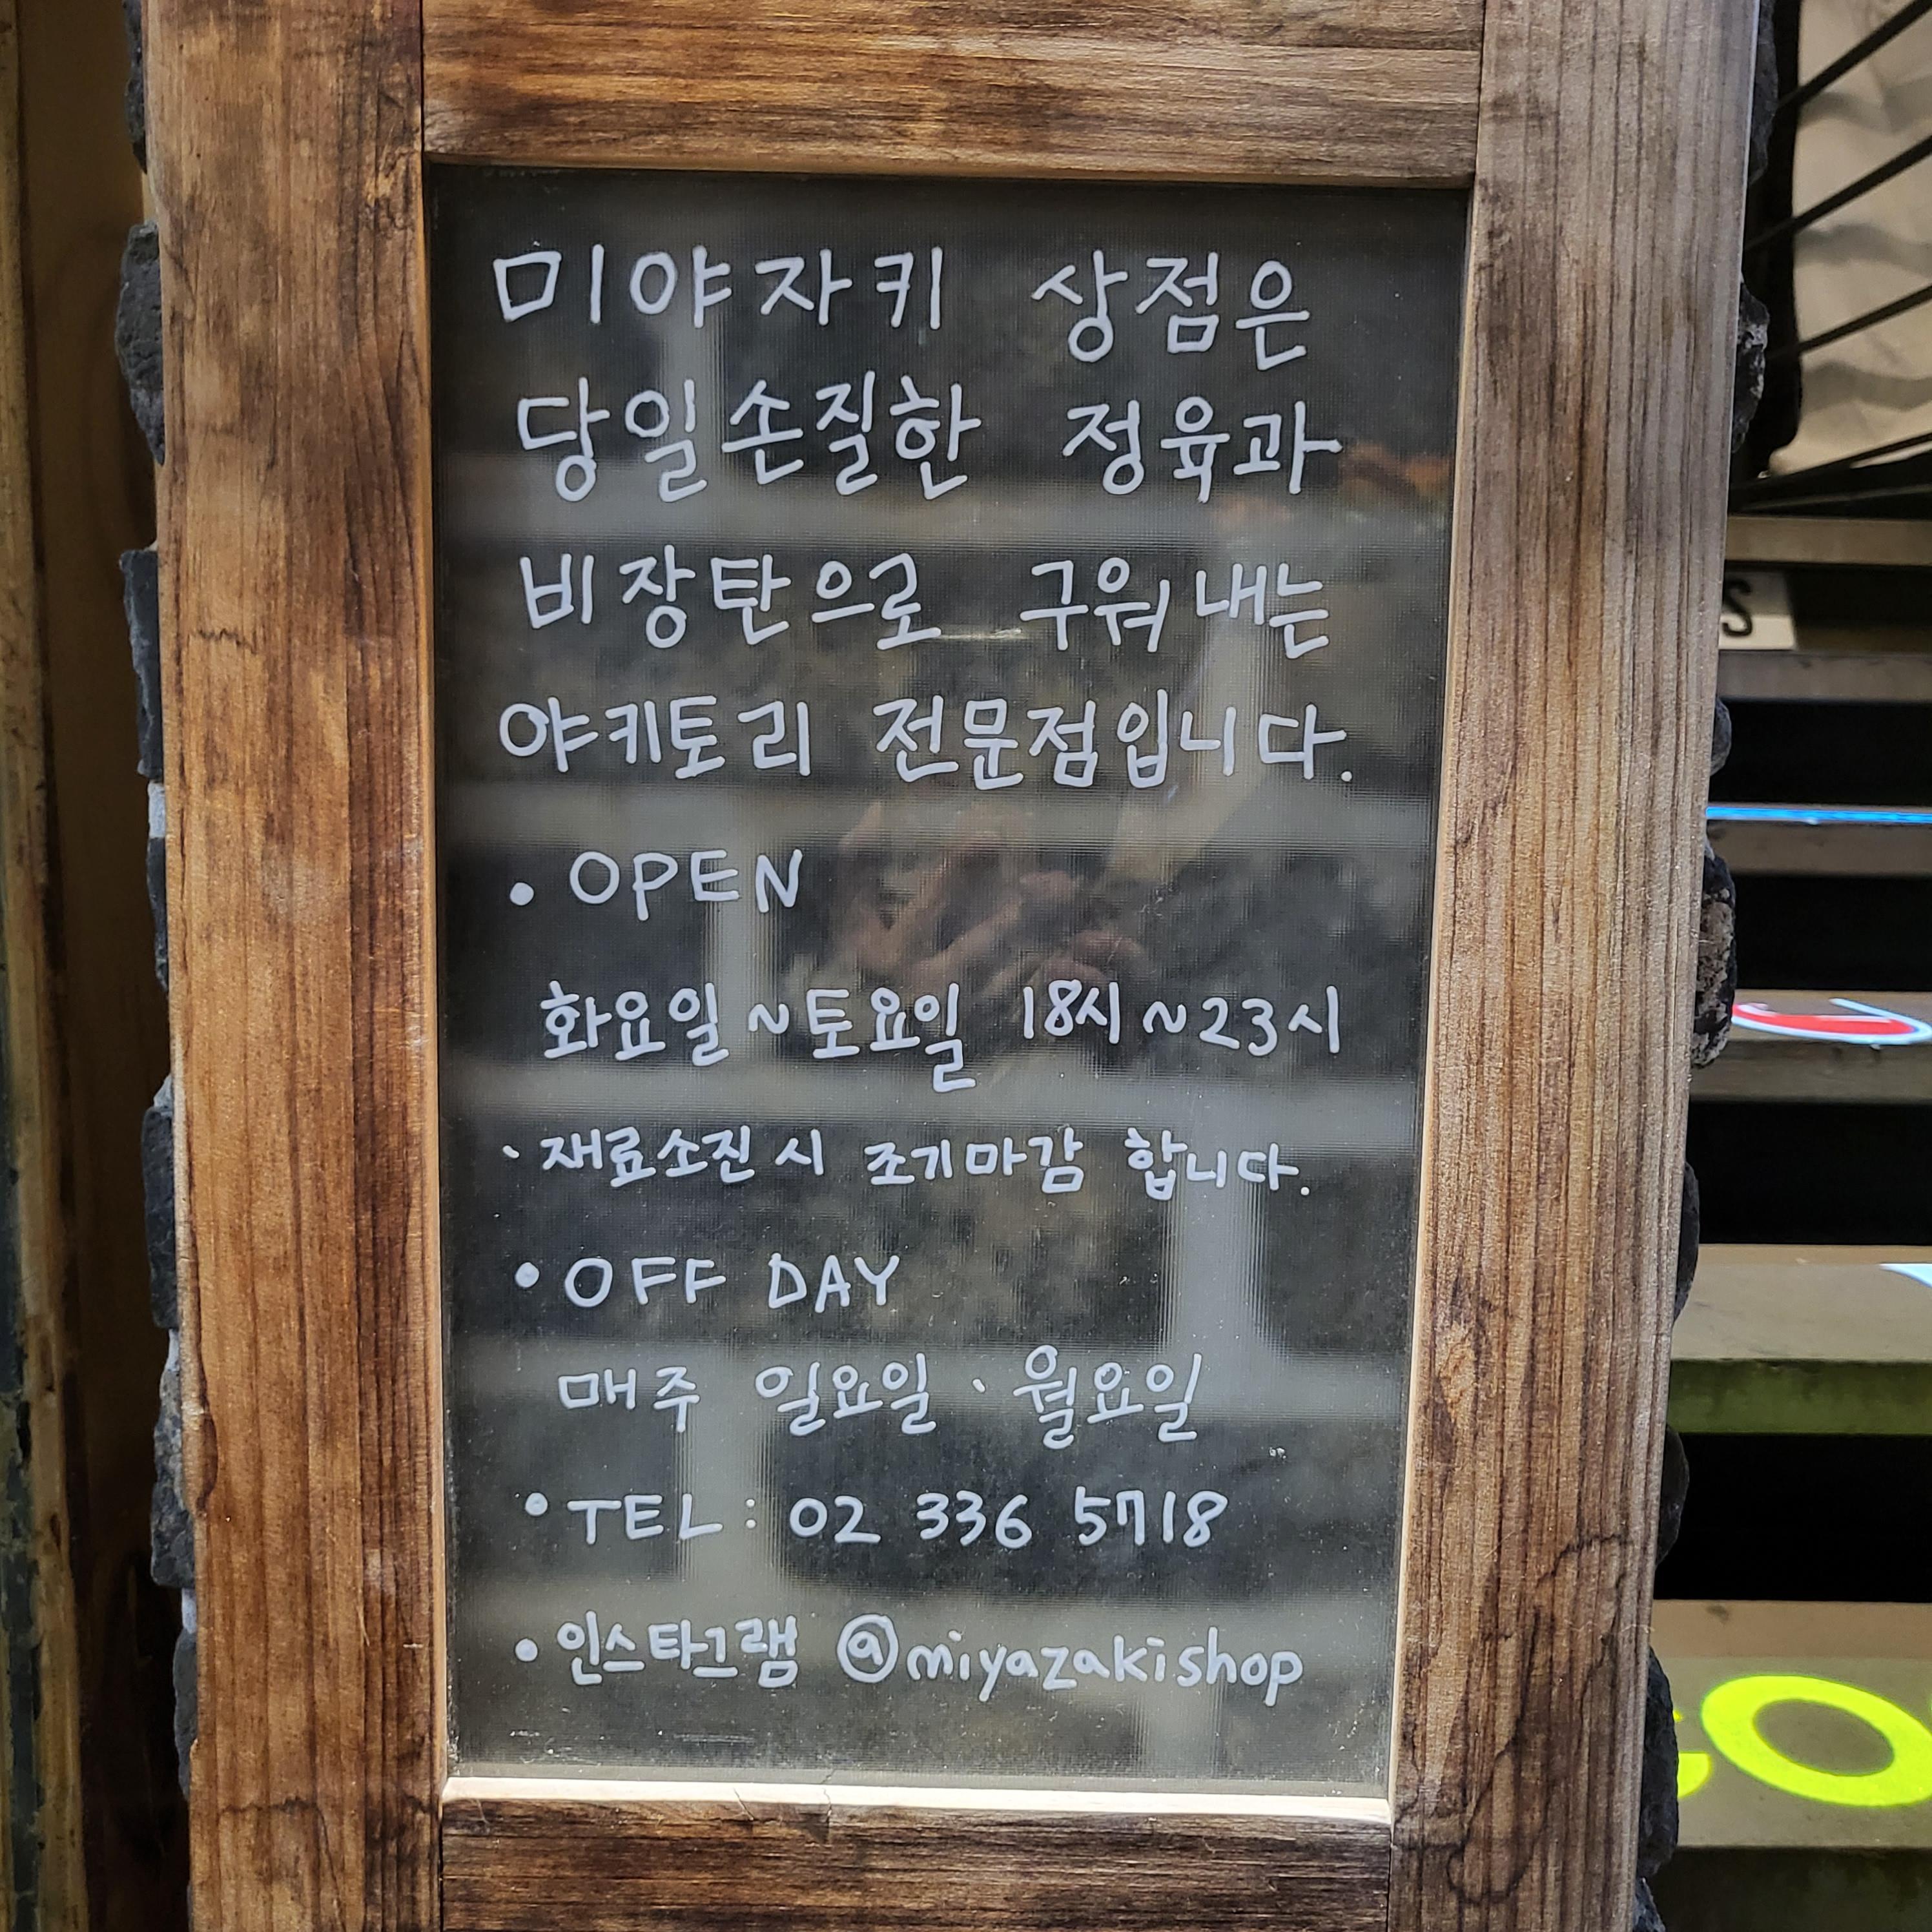 미야자키 상점은
당일손질한 정육과
비장탄으로 구워내는
야키토리 전문점입니다.
• OPEN
화요일~토요일 18시~23시
· 재료소진시 조기마감 합니다.
• OFF DAY
매주 일요일 · 월요일
• TEL : 02 336 5718
• 인스타그램 @miyazakishop
S
CO